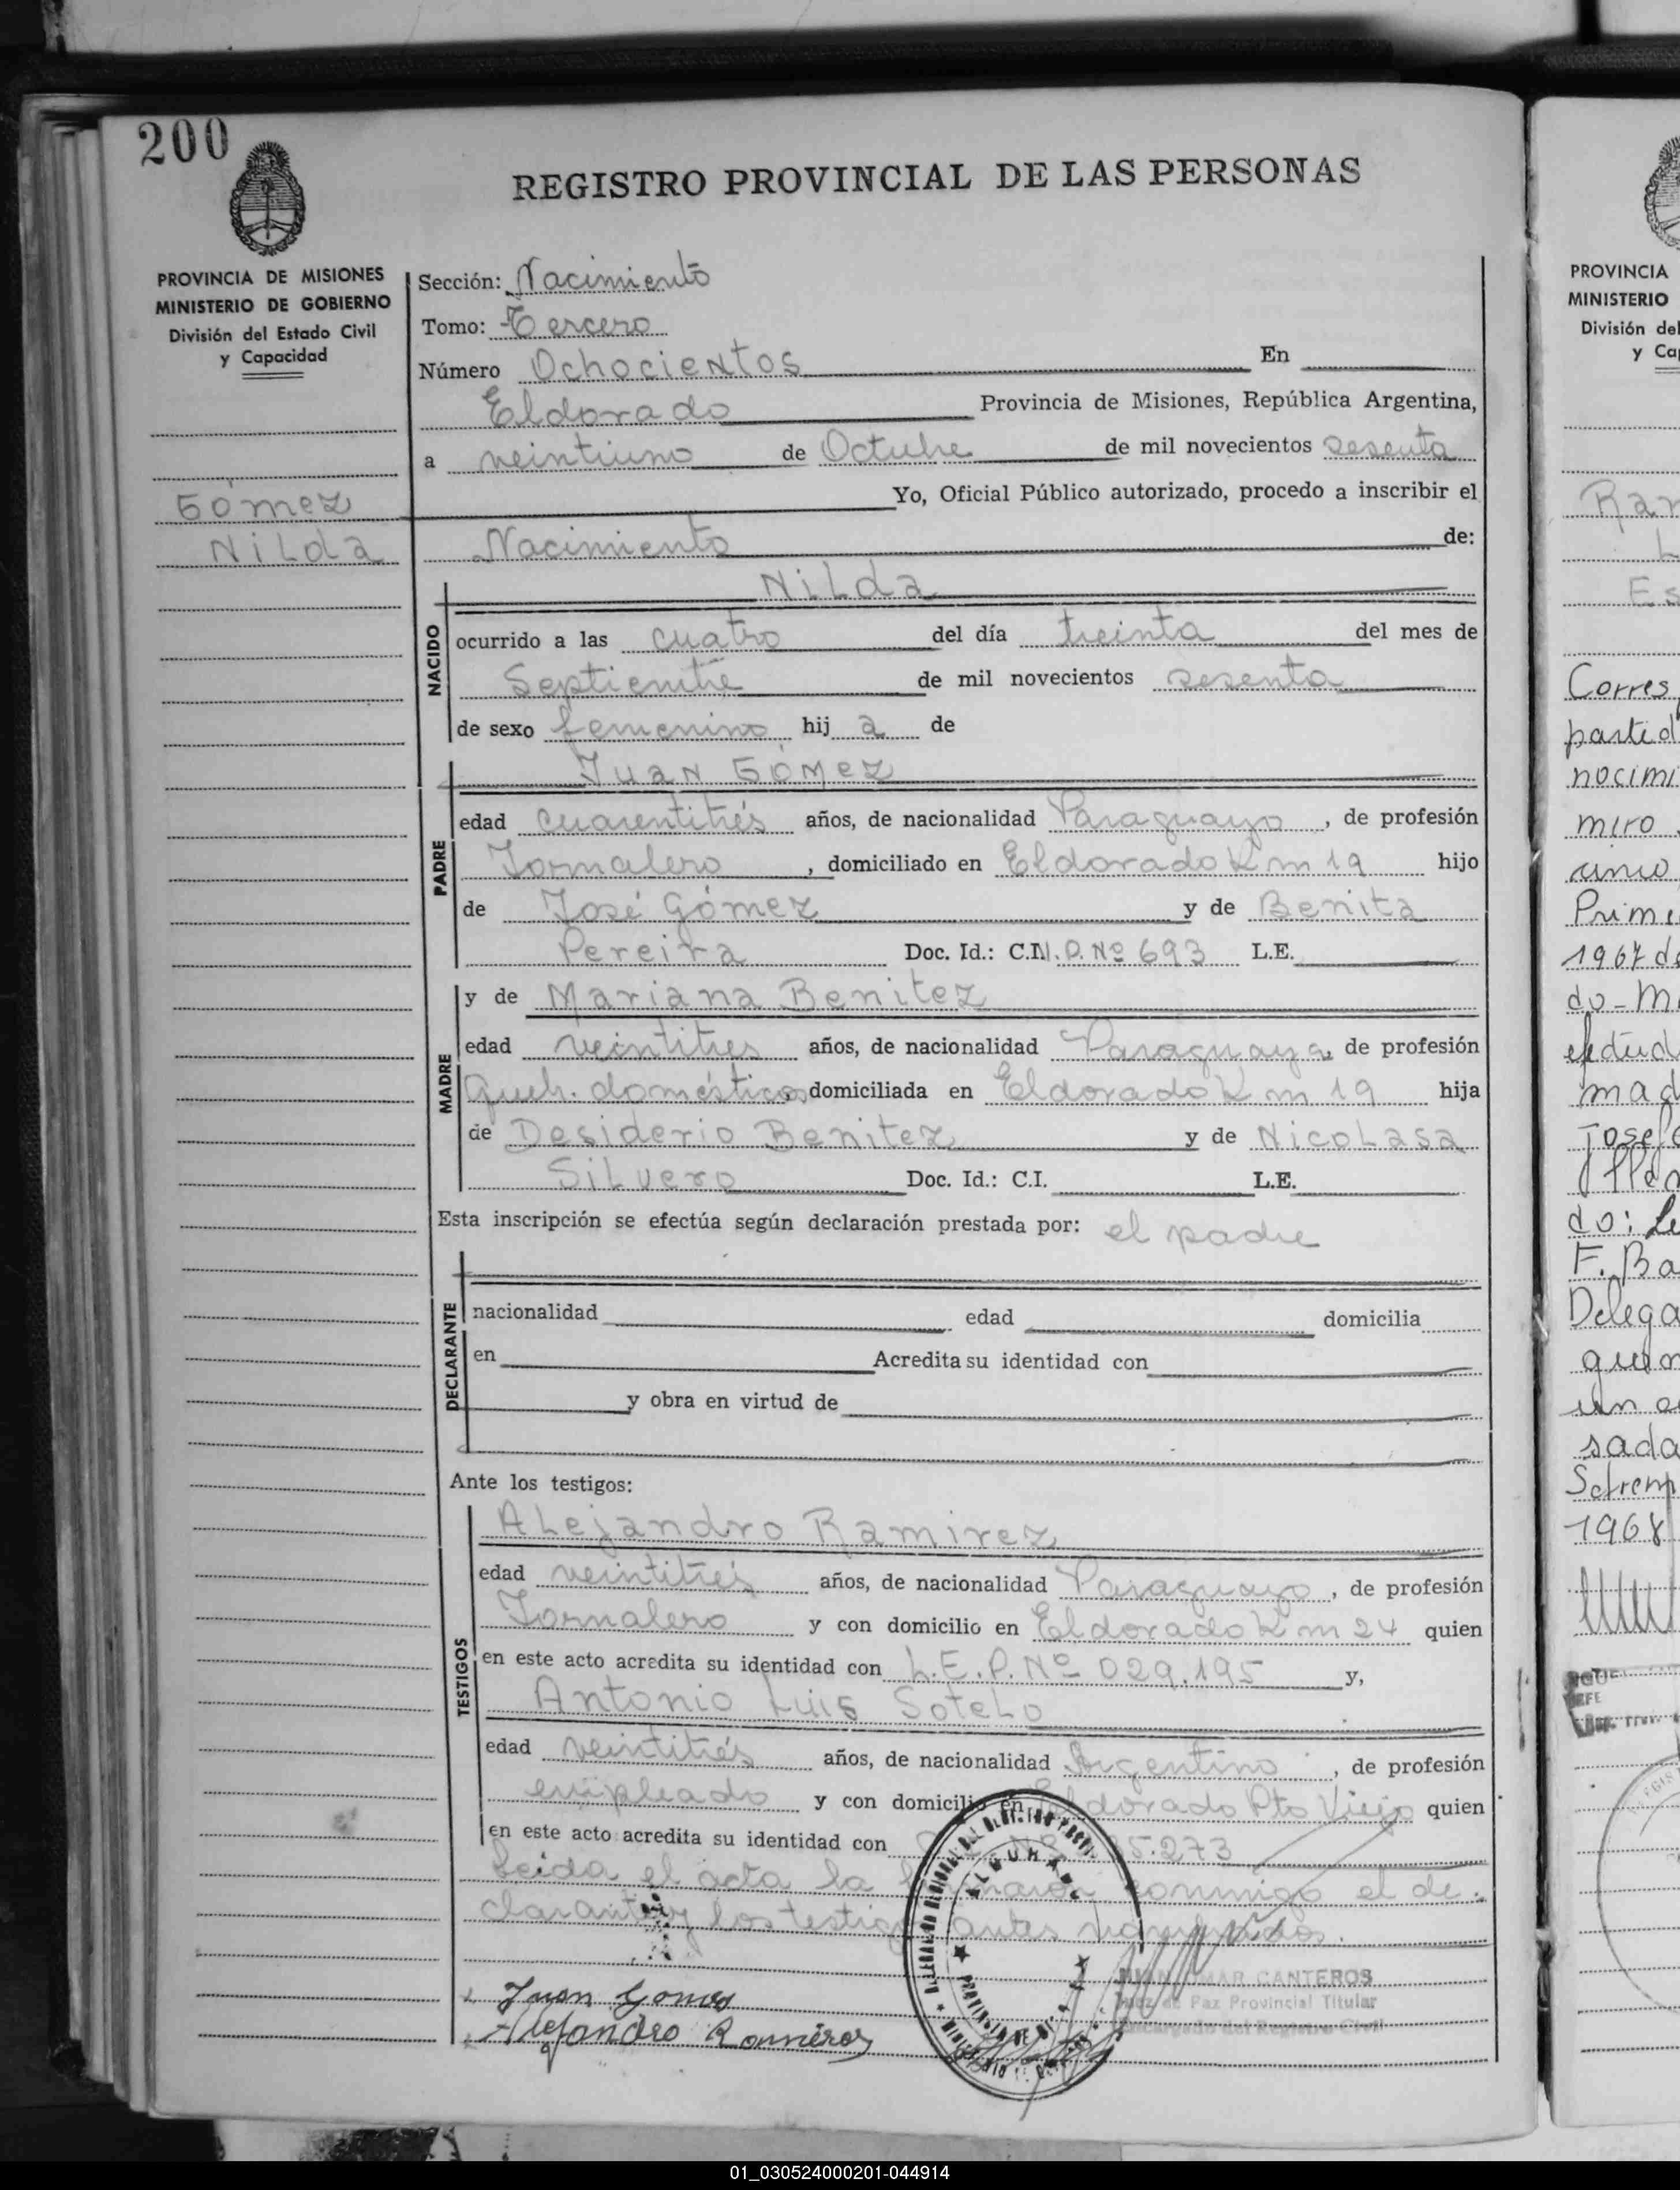 200
REGISTRO PROVINCIAL DE LAS PERSONAS
PROVINCIA DE MISIONES
MINISTERIO DE GOBIERNO
División del Estado Civil
y Capacidad
Gómez
Nilda
Sección: Nacimiento
Tomo: Tercero
Número Ochocientos En
Eldorado Provincia de Misiones, República Argentina,
a veintiuno de Octubre de mil novecientos sesenta
Yo, Oficial Público autorizado, procedo a inscribir el
Nacimiento de:
Nilda
NACIDO
ocurrido a las cuatro del día treinta del mes de
Septiembre de mil novecientos sesenta
de sexo femenino hij a de
Juan Gómez
PADRE
edad cuarentitrés años, de nacionalidad Paraguayo, de profesión
Jornalero, domiciliado en Eldorado Km 19 hijo
de José Gómez y de Benita
Pereira Doc. Id.: C.I. P. Nº 693 L.E.
MADRE
y de Mariana Benitez
edad veintitres años, de nacionalidad Paraguaya, de profesión
Queh. domésticos domiciliada en Eldorado Km 19 hija
de Desiderio Benitez y de Nicolasa
Silvero Doc. Id.: C.I. L.E.
Esta inscripción se efectúa según declaración prestada por: el padre
DECLARANTE
nacionalidad edad domicilia
en Acredita su identidad con
y obra en virtud de
Ante los testigos:
TESTIGOS
Alejandro Ramirez
edad veintitrés años, de nacionalidad Paraguayo, de profesión
Jornalero y con domicilio en Eldorado Km 24 quien
en este acto acredita su identidad con L.E.P. Nº 029.195 y,
Antonio Luis Sotelo
edad veintitrés años, de nacionalidad Argentino, de profesión
empleado y con domicilio en Eldorado Pto Viejo quien
en este acto acredita su identidad con 5.273
Leida el acta la conmigo el de-
clarante y los testigos antes nombrados.
JUAN OMAR CANTEROS
Juez de Paz Provincial Titular
Encargado del Registro Civil
Juan Gomes
Alejandro Ramirez
PROVINCIA
MINISTERIO
División del
y Ca
Corres
partid
nocimi
miro
Prim
1967 de
do-M
mad
do: Le
F. Ba
Delega
sada
1968
01_030524000201-044914